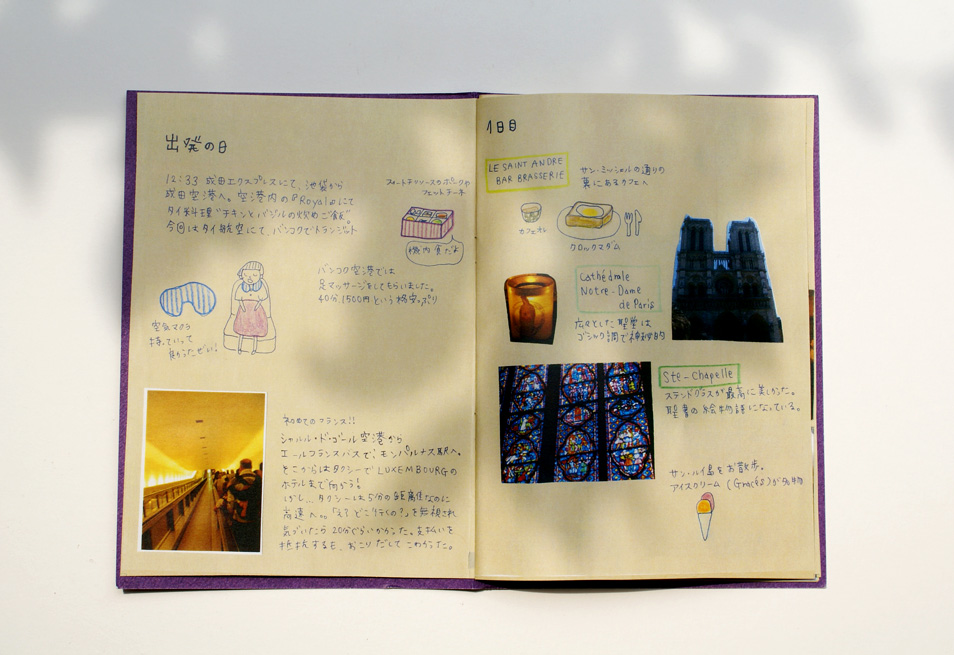 出発の日
12:33 成田エクスプレスにて、池袋から
成田空港へ。空港内の『Royal』にて
タイ料理"チキンとバジルの炒めご飯"
今回はタイ航空にて、バンコクでトランジット
フォートチリソースのポークや
フェットチーネ
機内食だよ
バンコク空港では
足マッサージをしてもらいました。
40分1500円という格安っぷり
空気マクラ
持っていって
良かったぜい!
初めてのフランス!!
シャルル・ド・ゴール空港から
エールフランスバスで、モンパルナス駅へ。
そこからはタクシーでLUXEMBOURGの
ホテルまで向かう!
しかし…タクシーは5分の距離なのに
高速へ。。「え?どこ行くの?」を無視され
気づいたら20分ぐらいかかった。支払いを
抵抗するも、おこりだしてこわかった。
1日目
LE SAINT ANDRE
BAR BRASSERIE
サン・ミッシェルの通りの
裏にあるカフェへ
カフェオレ
クロックマダム
Cathédrale
Notre-Dame
de Paris
広々とした聖堂は
ゴシック調で神秘的
Ste-Chapelle
ステンドグラスが最高に美しかった。
聖書の絵物語になっている。
サン・ルイ島をお散歩。
アイスクリーム (Graces)が名物